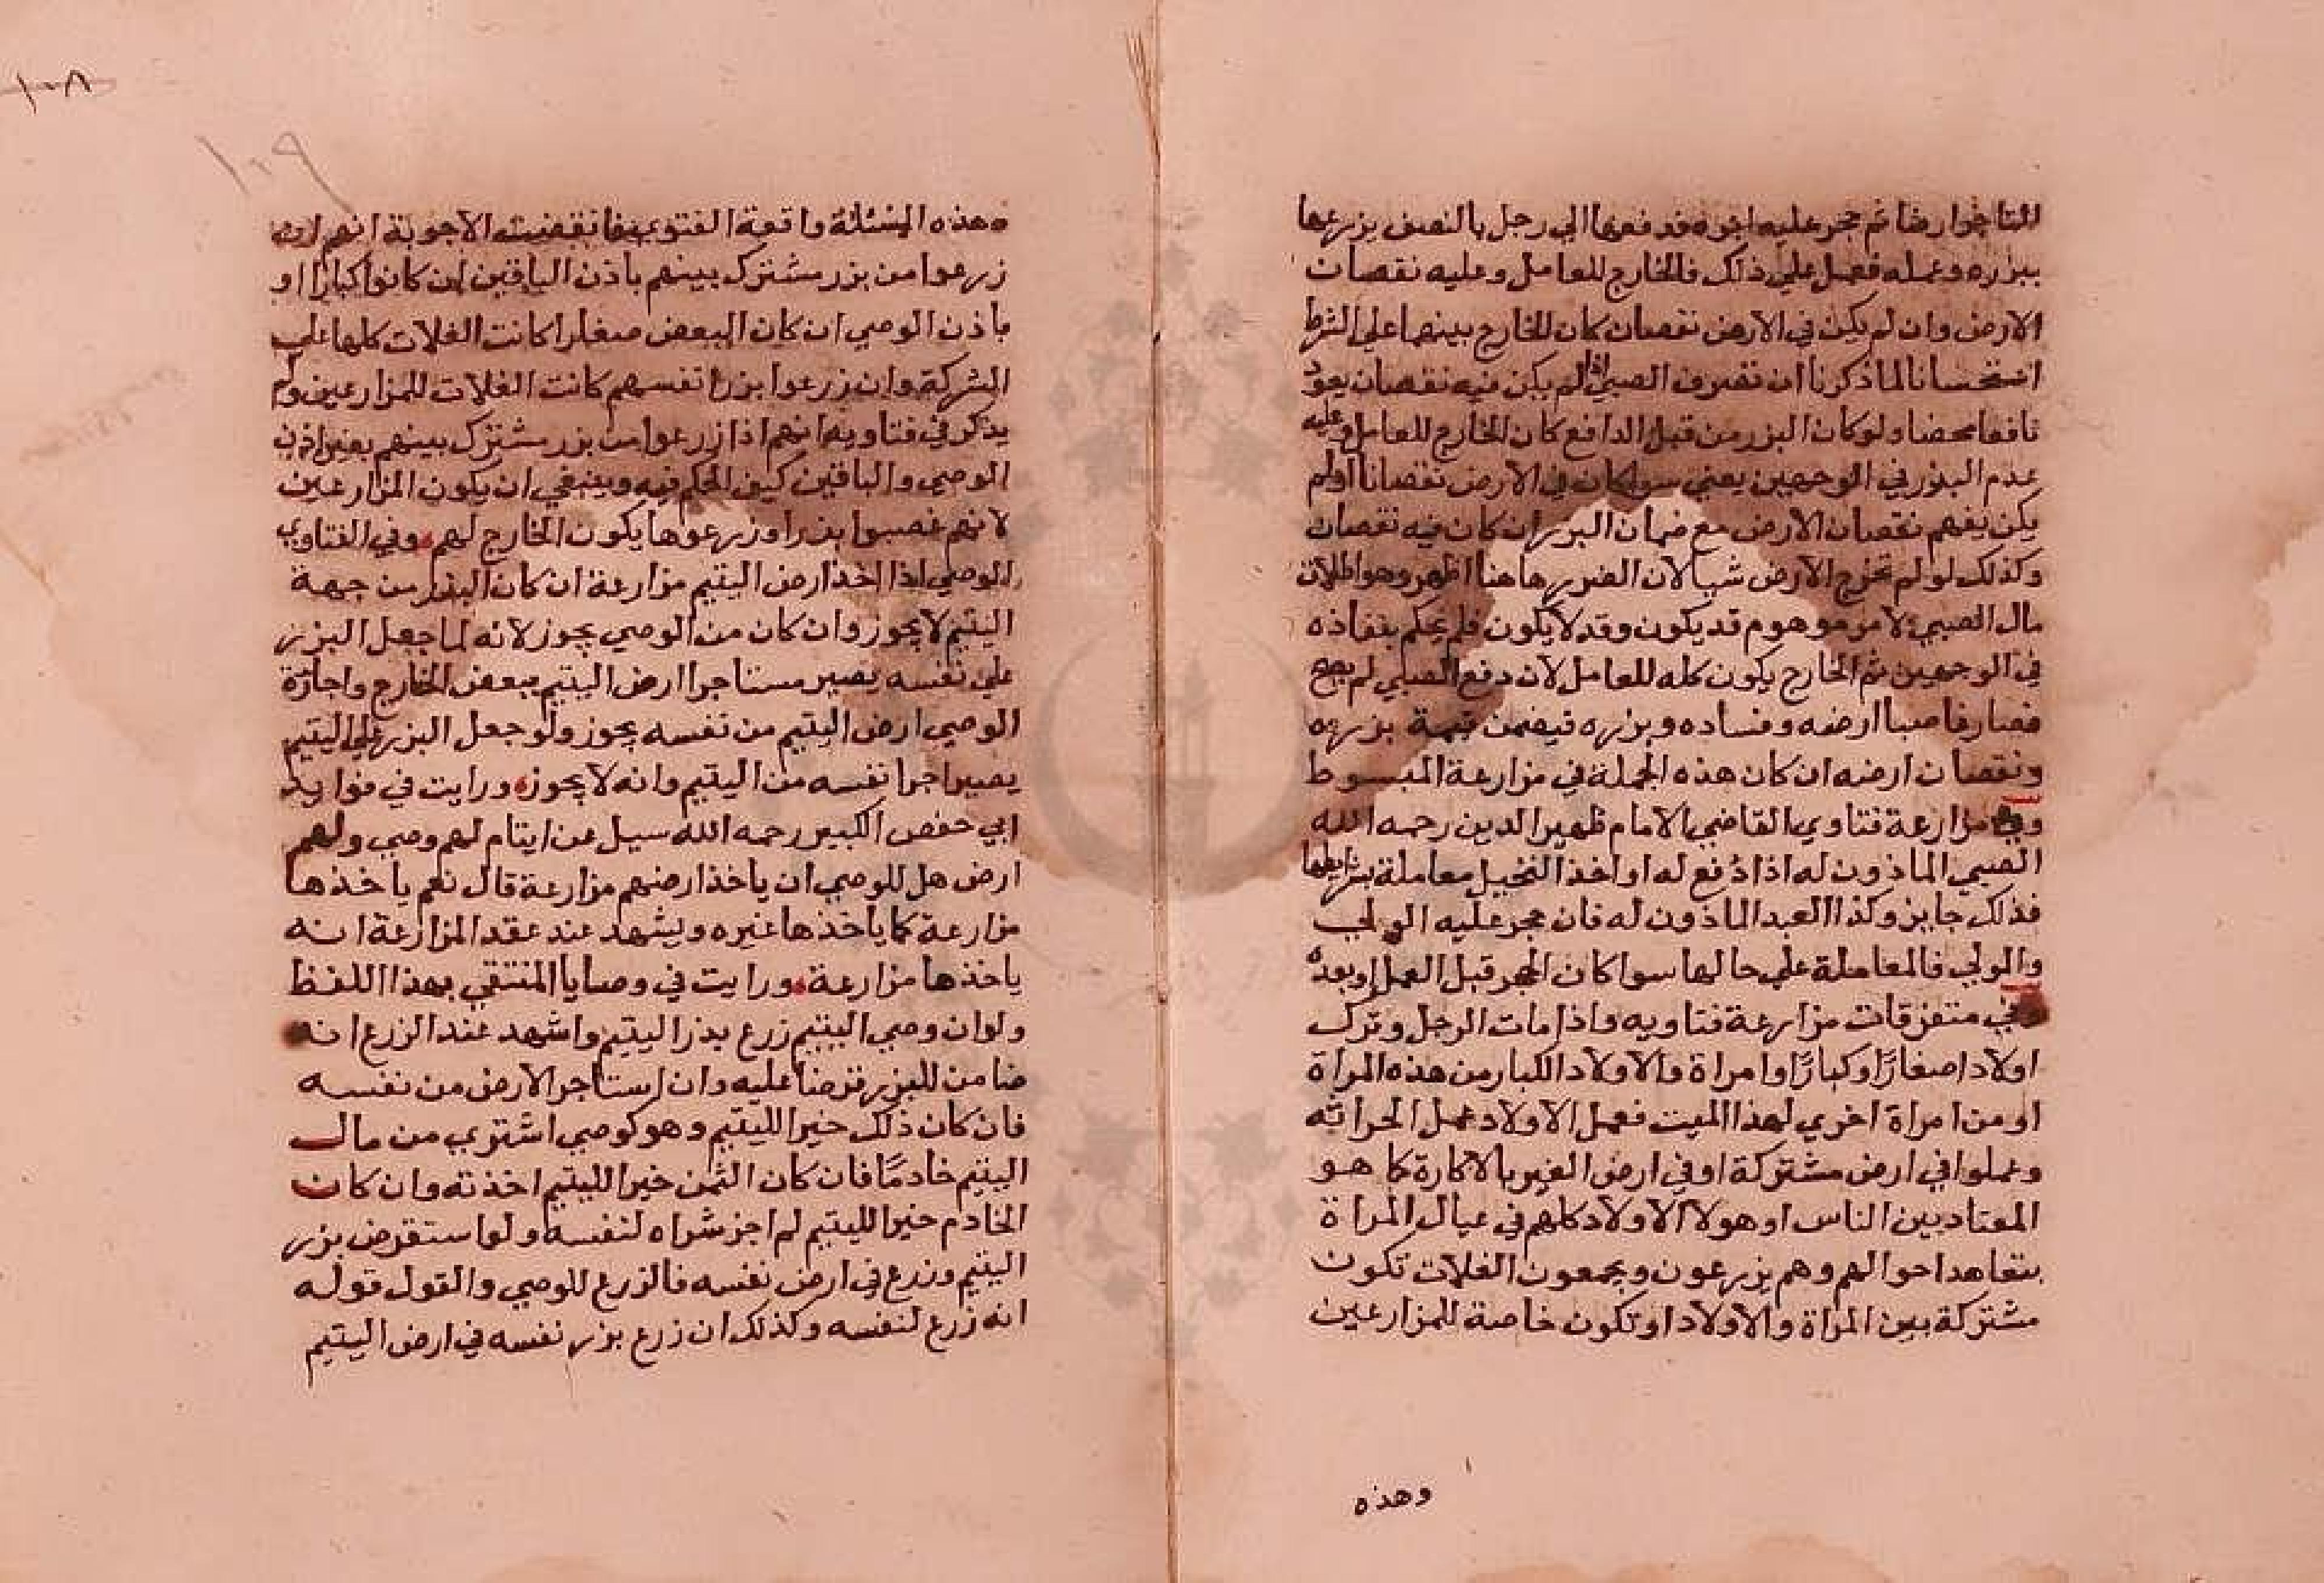 التاجر ارضا ثم حجر عليه ابوه فدفعها الي رجل بالنصف يزرعها
ببزره وعمله فعمل علي ذلك فالخارج للعامل وعليه نقصان
الارض وان لم يكن في الارض نقصان كان الخارج بينهما علي الشرط
استحسانا لما ذكرنا ان تصرف الصبي اذا لم يكن فيه نقصان يعود
نافعا محضا ولو كان البزر من قبل الدافع كان الخارج للعامل وعليه
غرم البذر في الوجهين يعني سوا كان في الارض نقصانا اولم
يكن يفهم نقصان الارض مع ضمان البزر ان كان فيه نقصان
وكذلك لو لم تخرج الارض شيا لان الضرر هاهنا اظهر وهو اطلاق
مال الصبي لامر موهوم قد يكون وقد لا يكون فلم يحكم بنفاذه
في الوجهين ثم الخارج يكون كله للعامل لان دفع الصبي لم يصح
فصار غاصبا ارضه وفساده وبزره فيضمن قيمة بزره
ونقصان ارضه ان كان هذه الجملة في مزارعة المبسوط
وفي مزارعة فتاوي القاضي الامام ظهير الدين رحمه الله
الصبي الماذون له اذا دفع له او اخذ النخيل معاملة
فذلك جايز وكذا العبد الماذون له فان حجر عليه الولي
والمولي فالمعاملة علي حالها سوا كان الحجر قبل العمل او بعده
وفي متفرقات مزارعة فتاويه واذا مات الرجل وترك
اولادا صغارًا وكبارًا وامراة والاولاد الكبار من هذه المراة
او من امراة اخري لهذا الميت فعمل الاولاد عمل الحراثه
وعملوا في ارض مشتركة او في ارض الغير بالاكارة كما هو
المعتاد بين الناس او هولا الاولاد كلهم في عيال المراة
يتعاهد احوالهم وهم يزرعون ويجمعون الغلات تكون
مشتركة بين المراة والاولاد او تكون خاصة للمزارعين
وهذه
١٠٨
١٠٩
وهذه المسئلة واقعة الفتوي فاتفقت الاجوبة انهم ان
زرعوا من بزر مشترك بينهم باذن الباقين ان كانوا كبارا او
باذن الوصي ان كان البعض صغارا كانت الغلات كلها علي
الشركة وان زرعوا بزر انفسهم كانت الغلات للمزارعين ولم
يذكر في فتاويه انهم اذا زرعوا من بزر مشترك بينهم بغير اذن
الوصي والباقين كيف الحكم فيه وينبغي ان يكون المزارعين
لانهم غصبوا بذرا وزرعوها يكون الخارج لهم وفي الفتاوي
الوصي اذا اخذ ارض اليتيم مزارعة ان كان البذر من جهة
اليتيم لا يجوز وان كان من الوصي يجوز لانه لما جعل البزر
علي نفسه يصير مستاجرا ارض اليتيم ببعض الخارج واجازة
الوصي ارض اليتيم من نفسه يجوز ولو جعل البزر علي اليتيم
يصير اجرا نفسه من اليتيم وانه لا يجوز ورايت في فوايد
ابي حفص الكبير رحمه الله سيل عن ايتام لهم وصي ولهم
ارض هل للوصي ان ياخذ ارضهم مزارعة قال نعم ياخذها
مزارعة كما ياخذها غيره ويشهد عند عقد المزارعة انه
ياخذها مزارعة ورايت في وصايا المنتقي بهذا اللفظ
ولو ان وصي اليتيم زرع بذر اليتيم واشهد عند الزرع انه
ضامن للبزر قرضا عليه وان استاجر الارض من نفسه
فان كان ذلك خيرا لليتيم وهو كوصي اشتري من مال
اليتيم خادمًا فان كان الثمن خيرا لليتيم اخذته وان كان
الخادم خيرا لليتيم لم اجز شراه لنفسه ولو استقرض بزر
اليتيم وزرع في ارض نفسه فالزرع للوصي والقول قوله
انه زرع لنفسه وكذلك ان زرع بزر نفسه في ارض اليتيم